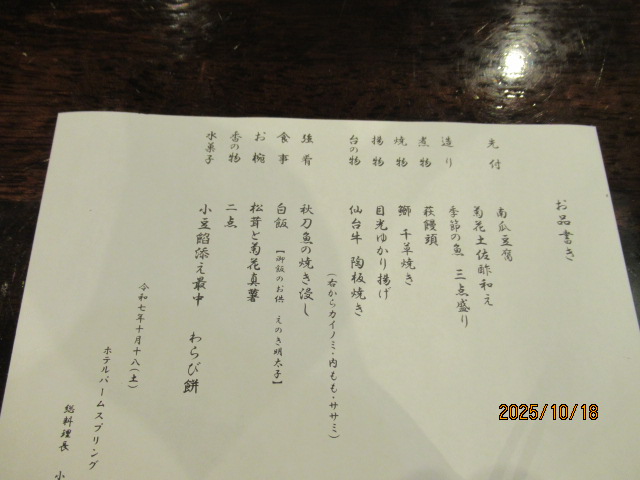 お品書き
先付　南瓜豆腐
菊花土佐酢和え
造り　季節の魚　三点盛り
煮物　萩饅頭
焼物　鰤　千草焼き
揚物　目光ゆかり揚げ
台の物　仙台牛　陶板焼き
(右からカイノミ・内もも・ササミ)
強肴　秋刀魚の焼き浸し
食事　白飯　【御飯のお供　えのき明太子】
お椀　松茸と菊花真薯
香の物　二点
水菓子　小豆餡添え最中　わらび餅
令和七年十月十八(土)
ホテルパームスプリング
総料理長　小
2025/10/18